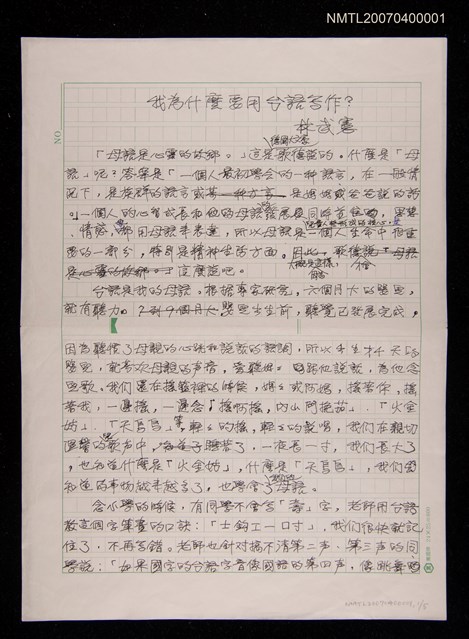 NMTL20070400001
我為什麼要用台語寫作?
林武憲
德國大文豪
「母語是心靈的故鄉。」這是歌德說的。什麼是「母
語」呢?答案是「一個人最初學會的一種語言,在一般情
況下,是族群的語言或某一種方言」是媽媽或爸爸說的話
。」一個人的心智成長和他的母語發展是同時並進的,思想
、情感,都用母語來表達,所以母語是一個人生命中極重
要的一部分,特別是精神生活方面。因此,歌德說「母語
是心靈的故鄉。」這麼說吧。
台語是我的母語。根據專家研究,六個月大的嬰兒,
就有聽力。2到9個月大嬰兒出生前,聽覺已發展完成,
因為聽慣了母親的心跳和說話的聲調,所以出生才4天的
嬰兒,就喜歡母親的聲音,要聽她
我們還在搖籃裡的時候,媽媽或阿媽,搖著你,搖
著我,一邊搖,一邊念「搖啊搖,內山門挽茄」、「火金
姑」、「天烏烏」等,輕輕的搖,輕輕的歌唱,我們在親切
溫馨的歌聲中,睡著了,一夜長一寸,我們長大了
,也知道什麼是「火金姑」,什麼是「天烏烏」,我們要
知道的事物越來越多了,也學會了母語。
念小學的時候,有同學不會寫「壽」字,老師用台語
教這個字筆畫的口訣:「士鈎工一口寸」,我們很快就記
住了,不再寫錯。老師也針對搞不清第二聲、第三聲的同
學說:「如果國字的台語字音像國語的第四聲,像跳舞的
NMTL20070400001 1/5